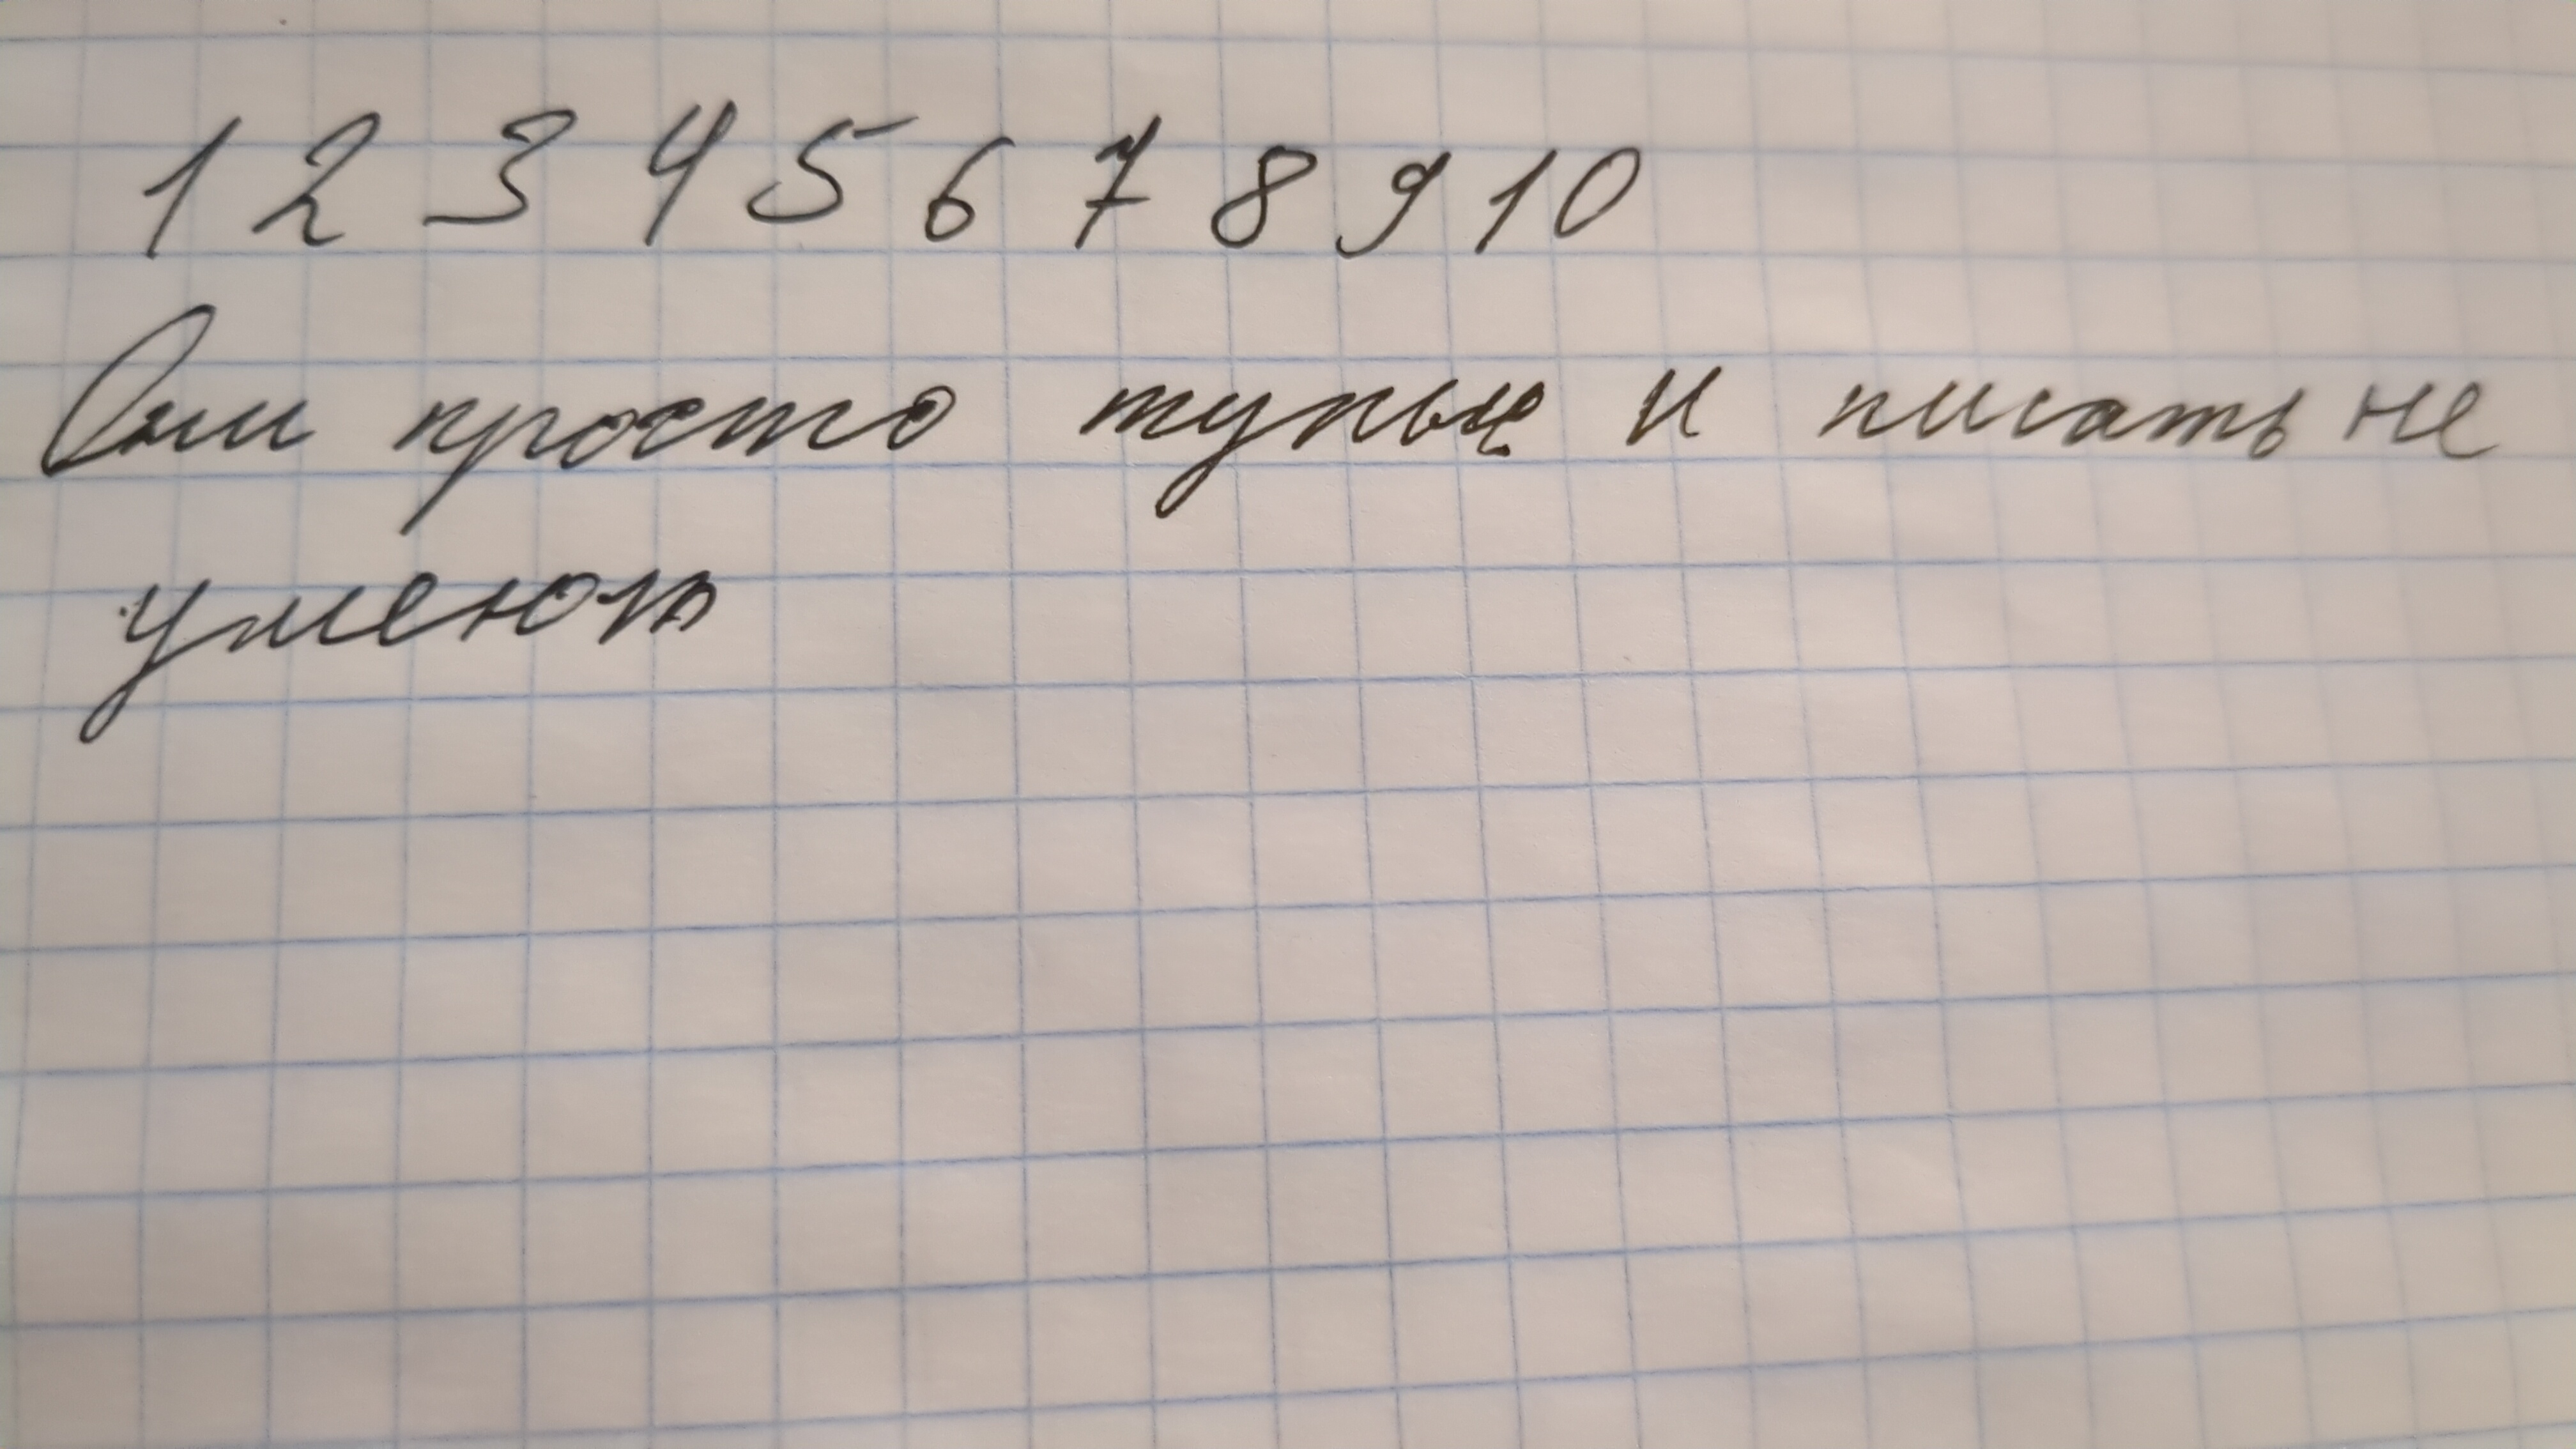 1 2 3 4 5 6 7 8 9 10
Они просто тупые и писать не
умеют